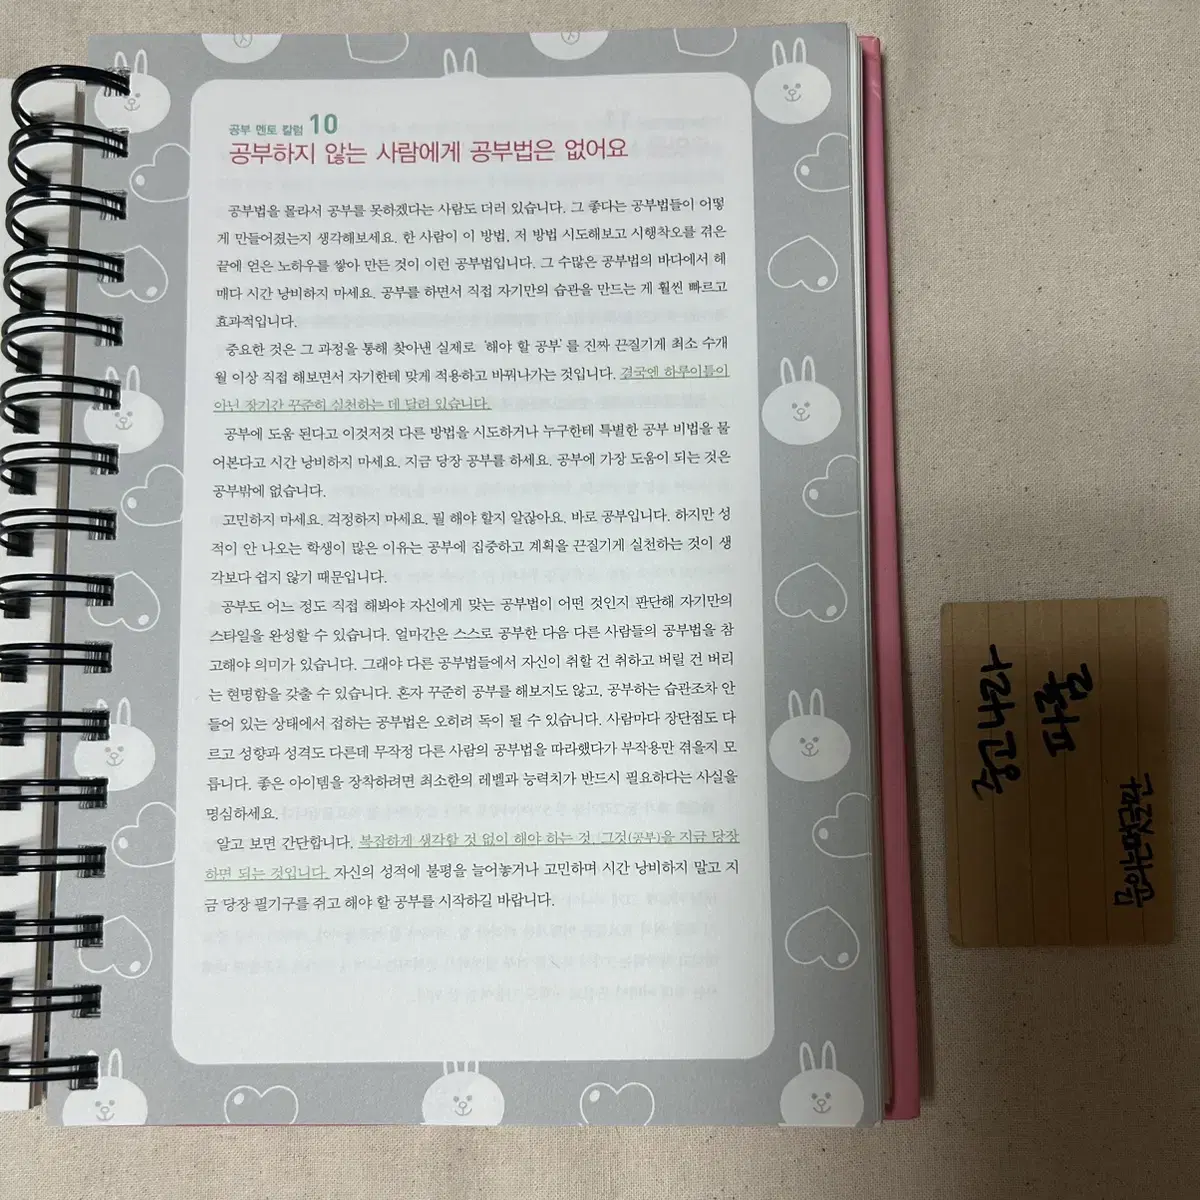 공부 멘토 칼럼 10
공부하지 않는 사람에게 공부법은 없어요
공부법을 몰라서 공부를 못하겠다는 사람도 더러 있습니다. 그 좋다는 공부법들이 어떻
게 만들어졌는지 생각해보세요. 한 사람이 이 방법, 저 방법 시도해보고 시행착오를 겪은
끝에 얻은 노하우를 쌓아 만든 것이 이런 공부법입니다. 그 수많은 공부법의 바다에서 헤
매다 시간 낭비하지 마세요. 공부를 하면서 직접 자기만의 습관을 만드는 게 훨씬 빠르고
효과적입니다.
중요한 것은 그 과정을 통해 찾아낸 실제로 '해야 할 공부'를 진짜 끈질기게 최소 수개
월 이상 직접 해보면서 자기한테 맞게 적용하고 바꿔나가는 것입니다. 결국엔 하루이틀이
아닌 장기간 꾸준히 실천하는 데 달려 있습니다.
공부에 도움 된다고 이것저것 다른 방법을 시도하거나 누구한테 특별한 공부 비법을 물
어본다고 시간 낭비하지 마세요. 지금 당장 공부를 하세요. 공부에 가장 도움이 되는 것은
공부밖에 없습니다.
고민하지 마세요. 걱정하지 마세요. 뭘 해야 할지 알잖아요. 바로 공부입니다. 하지만 성
적이 안 나오는 학생이 많은 이유는 공부에 집중하고 계획을 끈질기게 실천하는 것이 생
각보다 쉽지 않기 때문입니다.
공부도 어느 정도 직접 해봐야 자신에게 맞는 공부법이 어떤 것인지 판단해 자기만의
스타일을 완성할 수 있습니다. 얼마간은 스스로 공부한 다음 다른 사람들의 공부법을 참
고해야 의미가 있습니다. 그래야 다른 공부법들에서 자신이 취할 건 취하고 버릴 건 버리
는 현명함을 갖출 수 있습니다. 혼자 꾸준히 공부를 해보지도 않고, 공부하는 습관조차 안
들어 있는 상태에서 접하는 공부법은 오히려 독이 될 수 있습니다. 사람마다 장단점도 다
르고 성향과 성격도 다른데 무작정 다른 사람의 공부법을 따라했다가 부작용만 겪을지 모
릅니다. 좋은 아이템을 장착하려면 최소한의 레벨과 능력치가 반드시 필요하다는 사실을
명심하세요.
알고 보면 간단합니다. 복잡하게 생각할 것 없이 해야 하는 것, 그것(공부)을 지금 당장
하면 되는 것입니다. 자신의 성적에 불평을 늘어놓거나 고민하며 시간 낭비하지 말고 지
금 당장 필기구를 쥐고 해야 할 공부를 시작하길 바랍니다.
중고나라